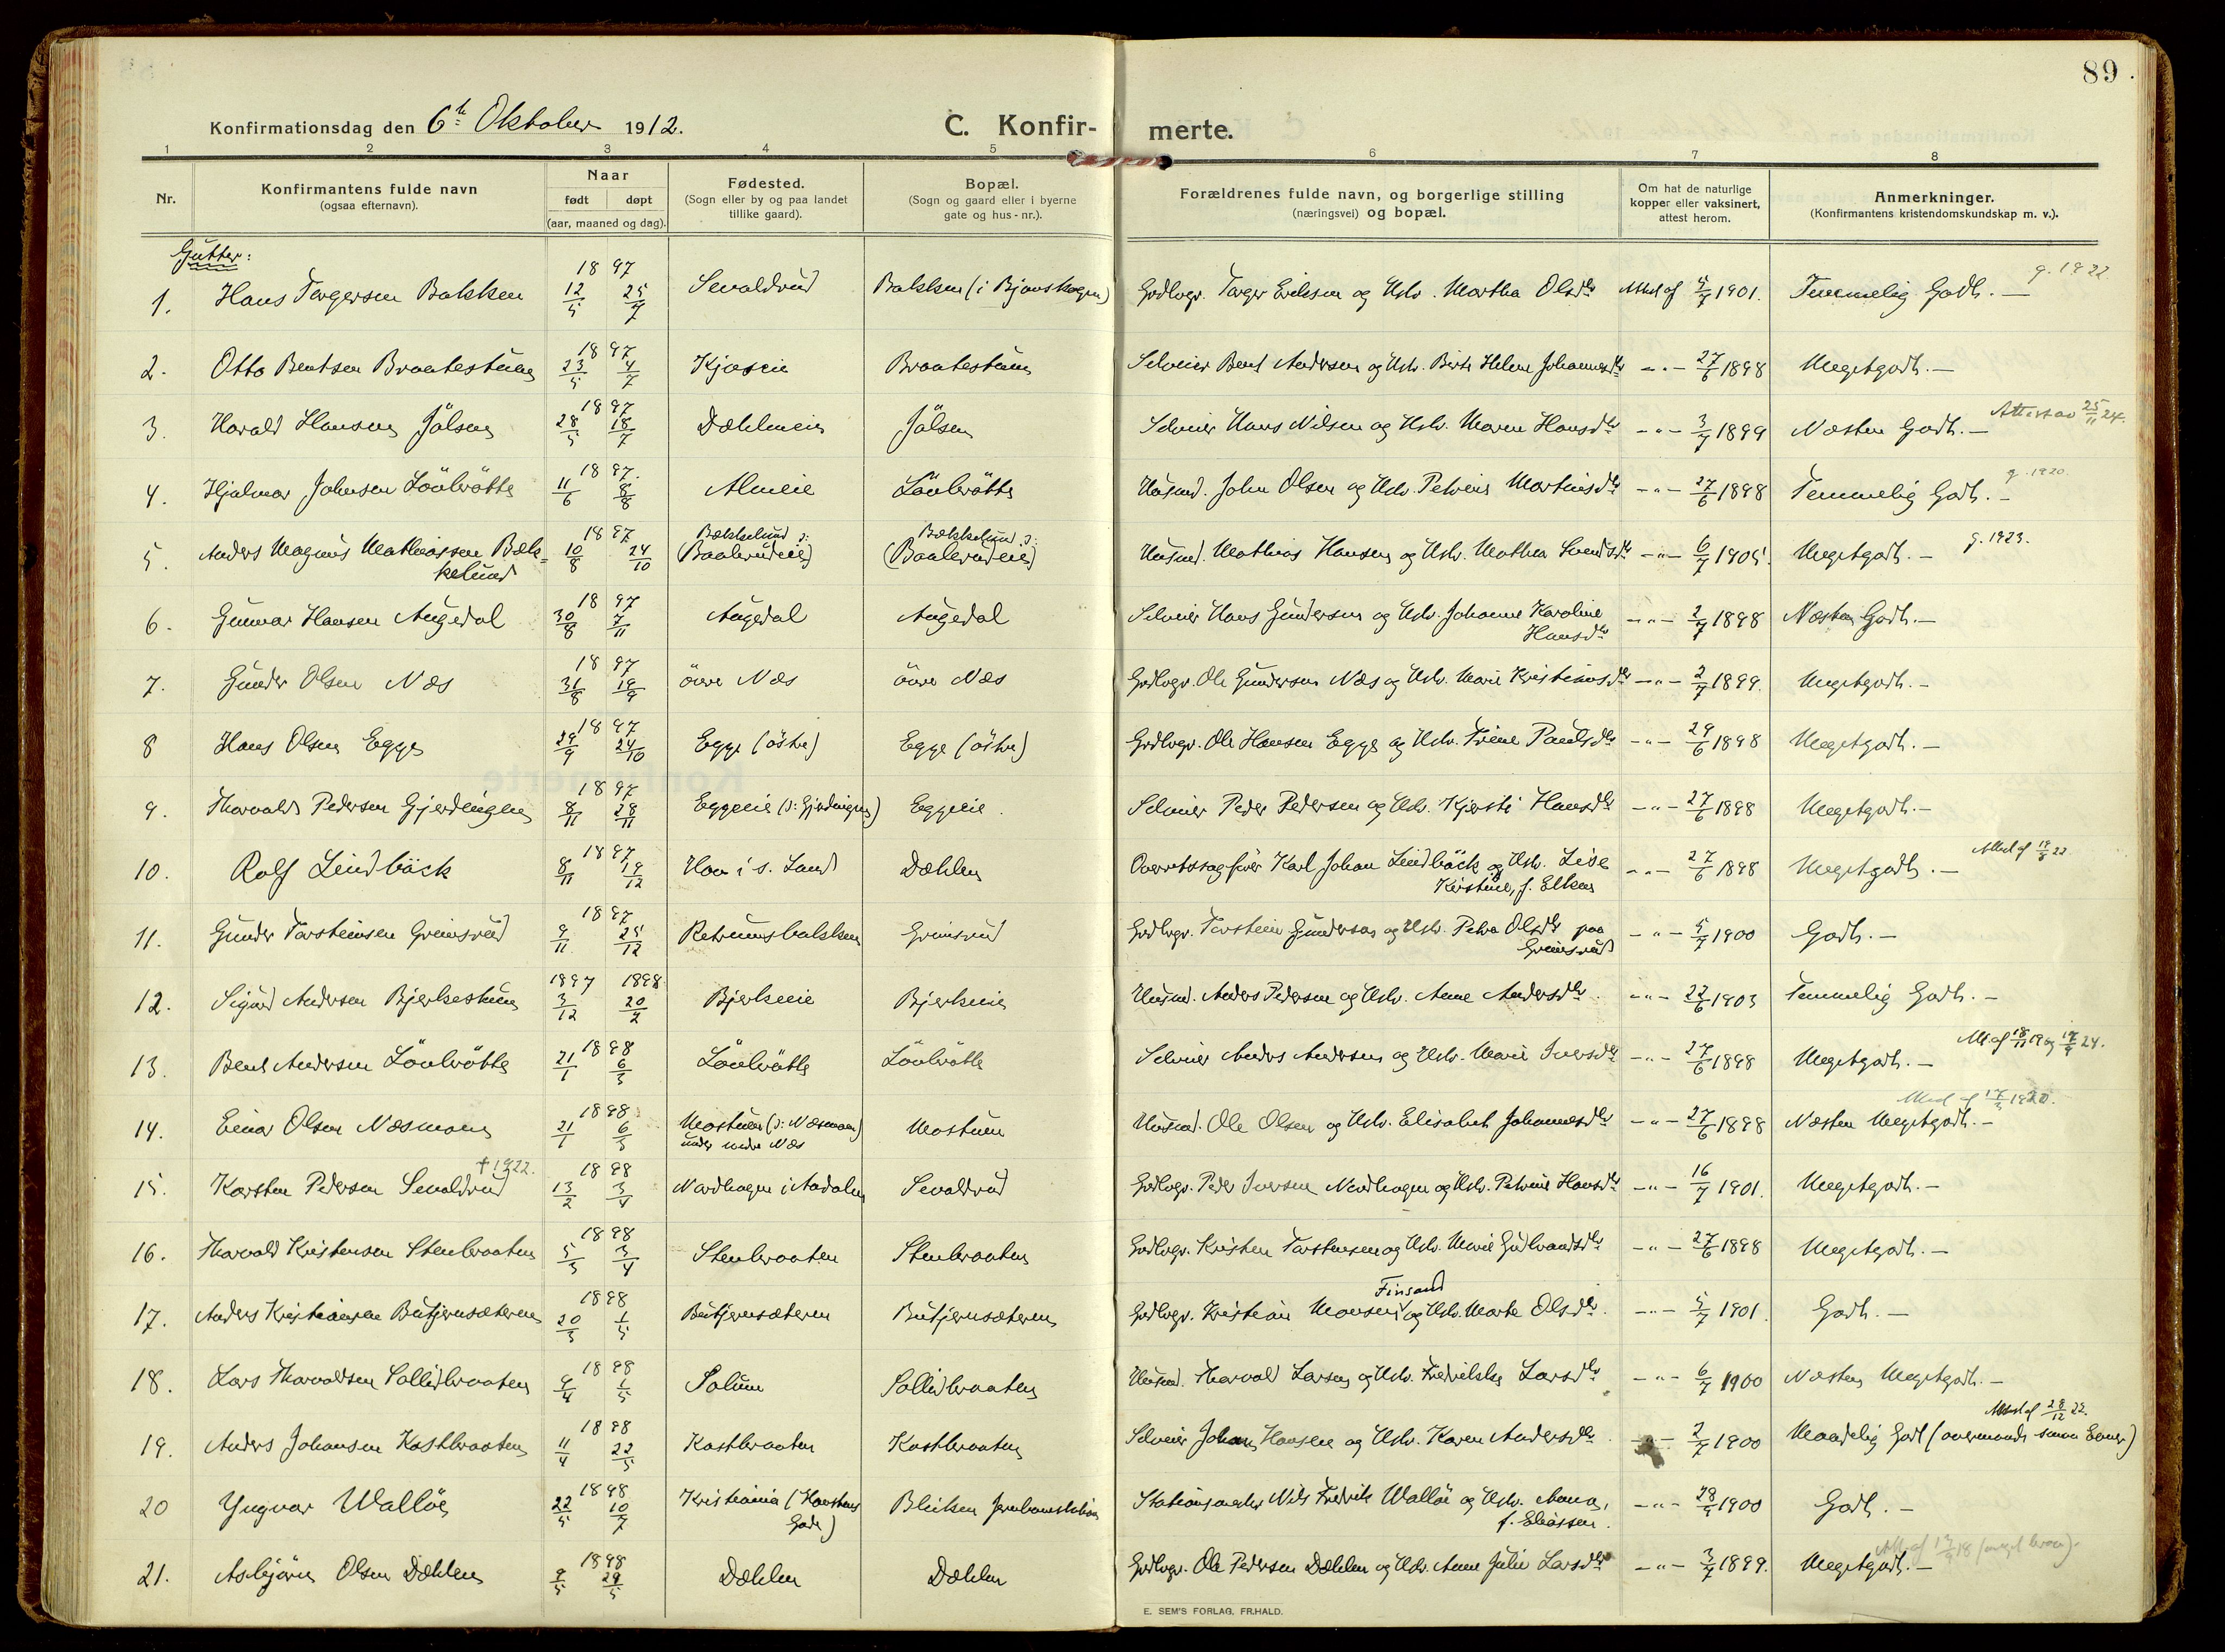 89.
Konfirmationsdag den 6te Oktober 1912.
C. Konfir-
merte.
1 2 3 4 5 6 7 8
Nr.
Konfirmantens fulde navn
(ogsaa efternavn).
Naar
født døpt
(aar, maaned og dag).
Fødested.
(Sogn eller by og paa landet
tillike gaard).
Bopæl.
(Sogn og gaard eller i byerne
gate og hus-nr.).
Forældrenes fulde navn, og borgerlige stilling
(næringsvei) og bopæl.
Om hat de naturlige
kopper eller vaksinert,
attest herom.
Anmerkninger.
(Konfirmantens kristendomskundskap m. v.).
Gutter:
g. 1922
1. Hans Torgersen Bakken 1897 12/5 25/7 Sevaldrud Bakken (i Bjonskogen) Grdbrgr. Torger Eriksen og Hstr. Martha Olsdtr 5/7 1901. Temmelig Godt. —
2. Otto Bentsen Braatestuen 1897 23/5 4/7 Kjoseie Braatestuen Selveier Bent Andersen og Hstr. Berte Helene Johannesdtr —"— 27/6 1898 Megetgodt. —
Attest av 25/11 24.
3. Harald Hansen Jölsen 1897 28/5 18/7 Dæhleneie Jölsen Selveier Hans Nilsen og Hstr. Maren Hansdtr —"— 3/7 1899 Næsten Godt. —
g. 1920.
4. Hjalmar Johnsen Löвbråtte 1897. 11/6 8/8 Almeie Husmd. John Olsen og Hstr. Petrine Martinsdtr —"— 27/6 1898 Temmelig Godt. —
5. Anders Magnus Mathiassen Bæk-
kelund 1897 10/8 24/10 Bækkelund ɔ:
(Baalerudeie) Bækkelund ɔ:
(Baalerudeie) Husmd. Mathias Hansen og Hstr. Mathea Svendsdtr —"— 6/7 1905. Megetgodt. — g. 1923.
6. Gunnar Hansen Augedal 1897 30/8 7/11 Augedal Augedal Selveier Hans Gundersen og Hstr. Johanne Karoline
Hansdtr —"— 2/7 1898 Næsten Godt. —
7. Gunder Olsen Næs 1897 31/8 19/9 övre Næs övre Næs Grdbrgr. Ole Gundersen Næs og Hstr. Marie Kristiansdtr —"— 2/7 1899. Megetgodt. —
8 Hans Olsen Egge 1897 29/9 24/10 Egge (östre) Egge (östre) Grdbrgr. Ole Hansen Egge og Hstr. Trine Paulsdtr —"— 29/6 1898 Megetgodt. —
9. Thorvald Pedersen Gjerdingen 1897 8/11 28/11 Eggeeie (ɔ: Gjerdingen) Eggeeie. Selveier Peder Pedersen og Hstr. Kjersti Hansdtr —"— 27/6 1898 Megetgodt. —
10. Rolf Lindbäck 1897 8/11 19/12 Hov i s. Land Dæhlen Overretssagfører Karl Johan Lindbäck og Hstr. Lise
Kristine, f. Elken —"— 27/6 1898 Megetgodt. —
11. Gunder Torsteinsen Grimsrud 1897 9/11 25/12 Retrumsbakken Grimsrud Grdbrgr. Torstein Gundersen og Hstr. Petra Olsdtr paa
Grimsrud —"— 5/7 1900 Godt. —
12. Sigurd Andersen Bjerkestuen 1897 1898 3/12 20/2 Bjerkeeie Bjerkeeie Husmd. Anders Pedersen og Hstr. Anne Andersdtr. —"— 22/6 1903 Temmelig Godt. —
13. Bent Andersen 1898 21/1 6/3 Selveier Anders Andersen og Hstr. Marie Iversdtr —"— 27/6 1898 Megetgodt. —
14. Einar Olsen Næsmoen 1898 21/1 6/3 Mostuen (ɔ: Næsmoen)
under nedre Næs Mostuen Husmd. Ole Olsen og Hstr. Elisabet Johannesdtr —"— 27/6 1898 Næsten Megetgodt. —
† 1922.
15. Karsten Pedersen Sevaldrud 1898 13/2 3/4 Nordhagen i Aadalen Sevaldrud Grdbrgr. Peder Iversen Nordhagen og Hstr. Petrine Hansdtr —"— 16/7 1901. Megetgodt. —
16. Thorvald Kristensen Stenbraaten 1898 5/3 3/4 Stenbraaten Stenbraaten Grdbrgr. Kristen Torstensen og Hstr. Marie Gulbrandsdtr —"— 27/6 1898 Megetgodt. —
17. Anders Kristiansen Butjernsæteren 1898 20/3 1/5 Butjernsæteren Butjernsæteren Grdbrgr. Kristian Monsen Finsand og Hstr. Marte Olsdtr. —"— 5/7 1901. Godt. —
18. Lars Thorvaldsen Sollidbraaten 1898 9/4 1/5 Solum Sollidbraaten Husmd. Thorvald Larsen og Hstr. Fredrikke Larsdtr —"— 6/7 1900 Næsten Megetgodt. —
19. Anders Johansen Kastbraaten 1898 11/4 22/5 Kastbraaten Kastbraaten Selveier Johan Hansen og Hstr. Karen Andersdtr. —"— 2/7 1900 Maadelig Godt (overmaade smaa Evner)
20 Yngvar Walløe 1898 22/5 10/7 Kristiania (
Gade) Bleiken Jernbanestation Stationsmester Nils Fredrik Walløe og Hstr. Anna,
f. Eliassen. —"— 1900 Godt. —
21. Asbjörn Olsen Dæhlen 1898 9/5 29/5 Dæhlen Dæhlen Grdbrgr. Ole Pedersen Dæhlen og Hstr. Anne Julie Larsdtr —"— 3/7 1899. Megetgodt. —
E. SEM'S FORLAG, FR.HALD.